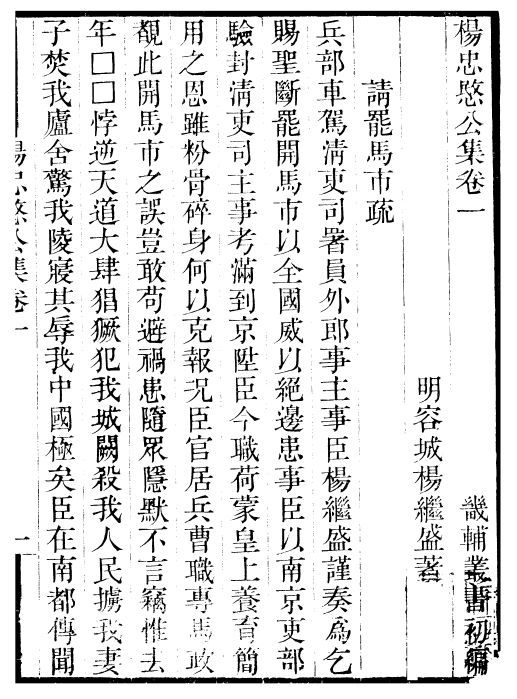 楊忠愍公集卷一　畿輔叢書初編
明容城楊繼盛著
請罷馬市疏
兵部車駕清吏司署員外郎事主事臣楊繼盛謹奏爲乞
賜聖斷罷開馬市以全國威以絕邊患事臣以南京吏部
驗封清吏司主事考滿到京陞臣今職荷蒙皇上養育簡
用之恩雖粉骨碎身何以克報况臣官居兵曹職專馬政
覩此開馬市之誤豈敢苟避禍患隨眾隱默不言竊惟去
年□□悖逆天道大肆猖獗犯我城闕殺我人民擄我妻
子焚我廬舍驚我陵寢其辱我中國極矣臣在南都傳聞
楊忠愍公集卷一　一